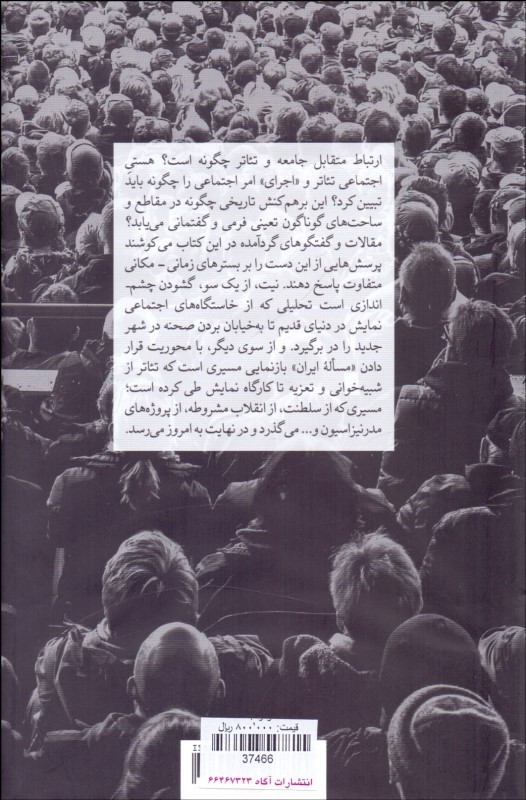 ارتباط متقابل جامعه و تئاتر چگونه است؟ هستیِ
اجتماعی تئاتر و «اجرای» امر اجتماعی را چگونه باید
تبیین کرد؟ این برهم‌کنش تاریخی چگونه در مقاطع و
ساحت‌های گوناگون تعینی فرمی و گفتمانی می‌یابد؟
مقالات و گفتگوهای گردآمده در این کتاب می‌کوشند
پرسش‌هایی از این دست را بر بسترهای زمانی - مکانی
متفاوت پاسخ دهند. نیت، از یک سو، گشودن چشم-
اندازی است تحلیلی که از خاستگاه‌های اجتماعی
نمایش در دنیای قدیم تا به‌خیابان بردن صحنه در شهر
جدید را در برگیرد. و از سوی دیگر، با محوریت قرار
دادن «مسألهٔ ایران» بازنمایی مسیری است که تئاتر از
شبیه‌خوانی و تعزیه تا کارگاه نمایش طی کرده است؛
مسیری که از سلطنت، از انقلاب مشروطه، از پروژه‌های
مدرنیزاسیون و... می‌گذرد و در نهایت به امروز می‌رسد.
قیمت: ۸۰۰٬۰۰۰ ریال
37466
انتشارات آگاه ۶۶۴۶۷۳۲۳